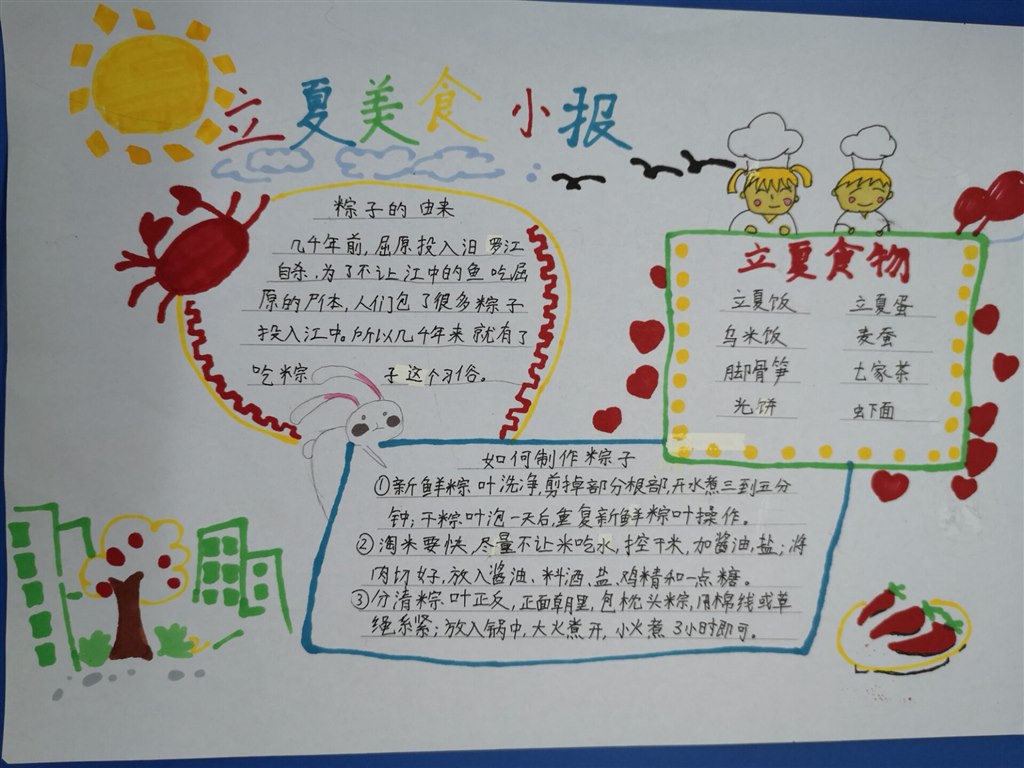 立夏美食小报
粽子的由来
几千年前,屈原投入汨罗江
自杀,为了不让江中的鱼吃屈
原的尸体,人们包了很多粽子
投入江中。所以几千年来就有了
吃粽子这个习俗。
立夏食物
立夏饭 立夏蛋
乌米饭 麦蚕
脚骨笋 七家茶
光饼 虾面
如何制作粽子
①新鲜粽叶洗净,剪掉部分根部,开水煮三到五分
钟;干粽叶泡一天后,重复新鲜粽叶操作。
②淘米要快,尽量不让米吃水,控干米,加酱油,盐;将
肉切好,放入酱油、料酒、盐、鸡精和一点糖。
③分清粽叶正反,正面朝里,包枕头粽,用棉线或草
绳系紧;放入锅中,大火煮开,小火煮3小时即可。